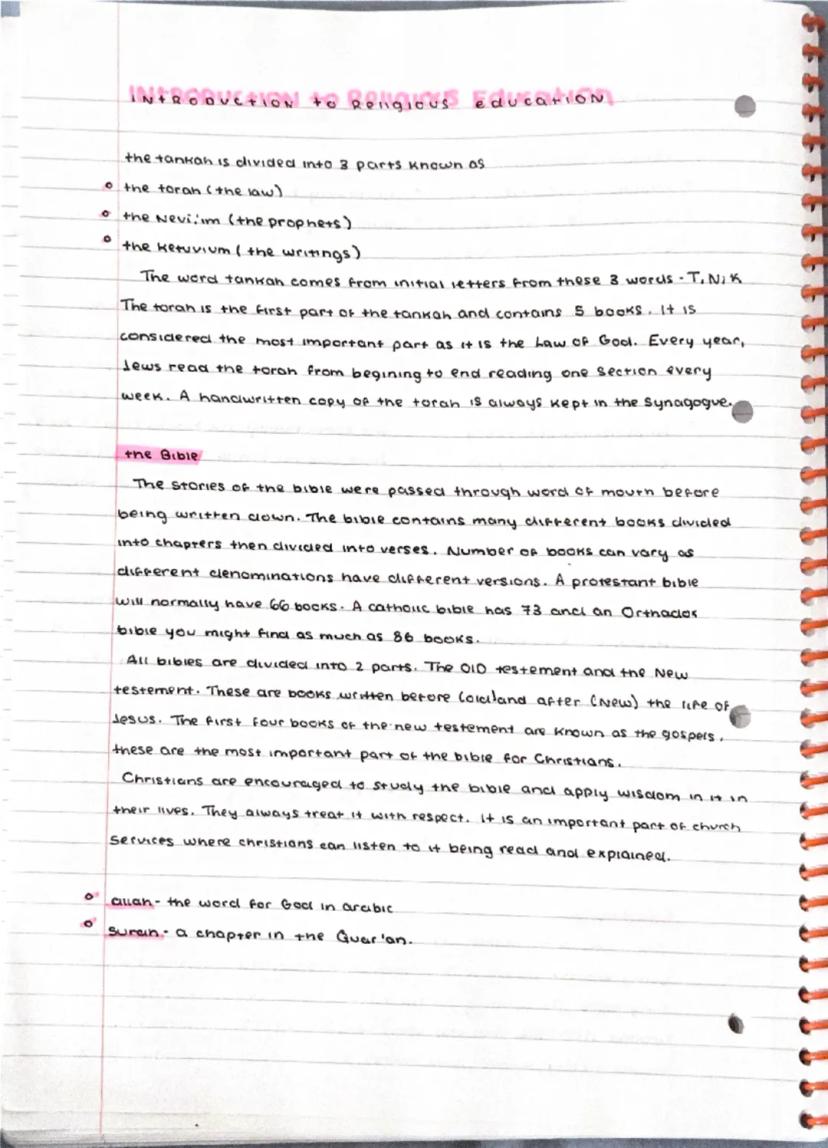 INTRODUCTION to Religious Education
the tankah is divided into 3 parts known as
the torah (the law)
the Nevi'im (the prophets)
the Ketuvium (the writings)
The word tankah comes from initial letters from these 3 words - T, N, K
The torah is the first part of the tankah and contains 5 books. It is
considered the most important part as it is the Law of God. Every year,
Jews read the torah from begining to end reading one section every
week. A handwritten copy of the torah is always kept in the synagogue.
the Bible
The stories of the bible were passed through word of mouth before
being written down. The bible contains many different books divided
into chapters then divided into verses. Number of books can vary as
different denominations have different versions. A protestant bible
will normally have 66 books. A catholic bible has 73 and an Orthadox
bible you might find as much as 86 books.
All bibles are divided into 2 parts. The Old testement and the New
testement. These are books written before (old) and after (New) the life of
Jesus. The first four books of the new testement are known as the gospels,
these are the most important part of the bible for Christians.
Christians are encouraged to study the bible and apply wisdom in it in
their lives. They always treat it with respect. It is an important part of church
services where christians can listen to it being read and explained.
allah - the word for God in arabic
surah - a chapter in the Quar'an.